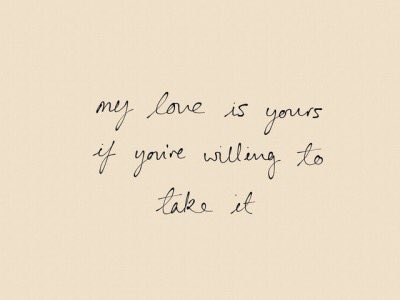 my love is yours
if you're willing to
take it